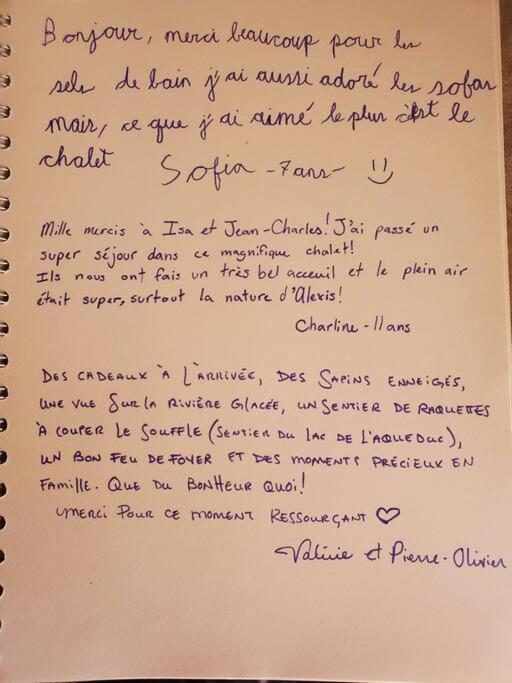 Bonjour, merci beaucoup pour les
sels de bain j'ai aussi adoré les sofas
mais, ce que j'ai aimé le plus c'est le
chalet Sofia -7ans- :)
Mille mercis à Isa et Jean-Charles! J'ai passé un
super séjour dans ce magnifique chalet!
Ils nous ont fais un très bel acceuil et le plein air
était super, surtout la nature d'Alexis!
Charline -11ans
DES CADEAUX À L'ARRIVÉE, DES SAPINS ENNEIGÉS,
UNE VUE SUR LA RIVIÈRE GLACÉE, UN SENTIER DE RAQUETTES
À COUPER LE SOUFFLE (SENTIER DU LAC DE L'AQUEDUC),
UN BON FEU DE FOYER ET DES MOMENTS PRÉCIEUX EN
FAMILLE. QUE DU BONHEUR QUOI!
MERCI POUR CE MOMENT RESSOURÇANT ♡
Valérie et Pierre-Olivier